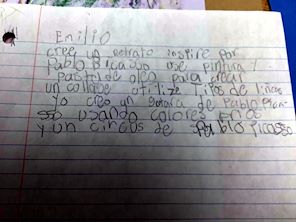 Emilio
cree un retrato inspire por
Pablo Picasso use pintura y
pastel de oleo para crear
un collabe utilize Tipos de lineas
yo creo un de Pablo Pica
sso usando colores
y un circus de Pablo Picasso